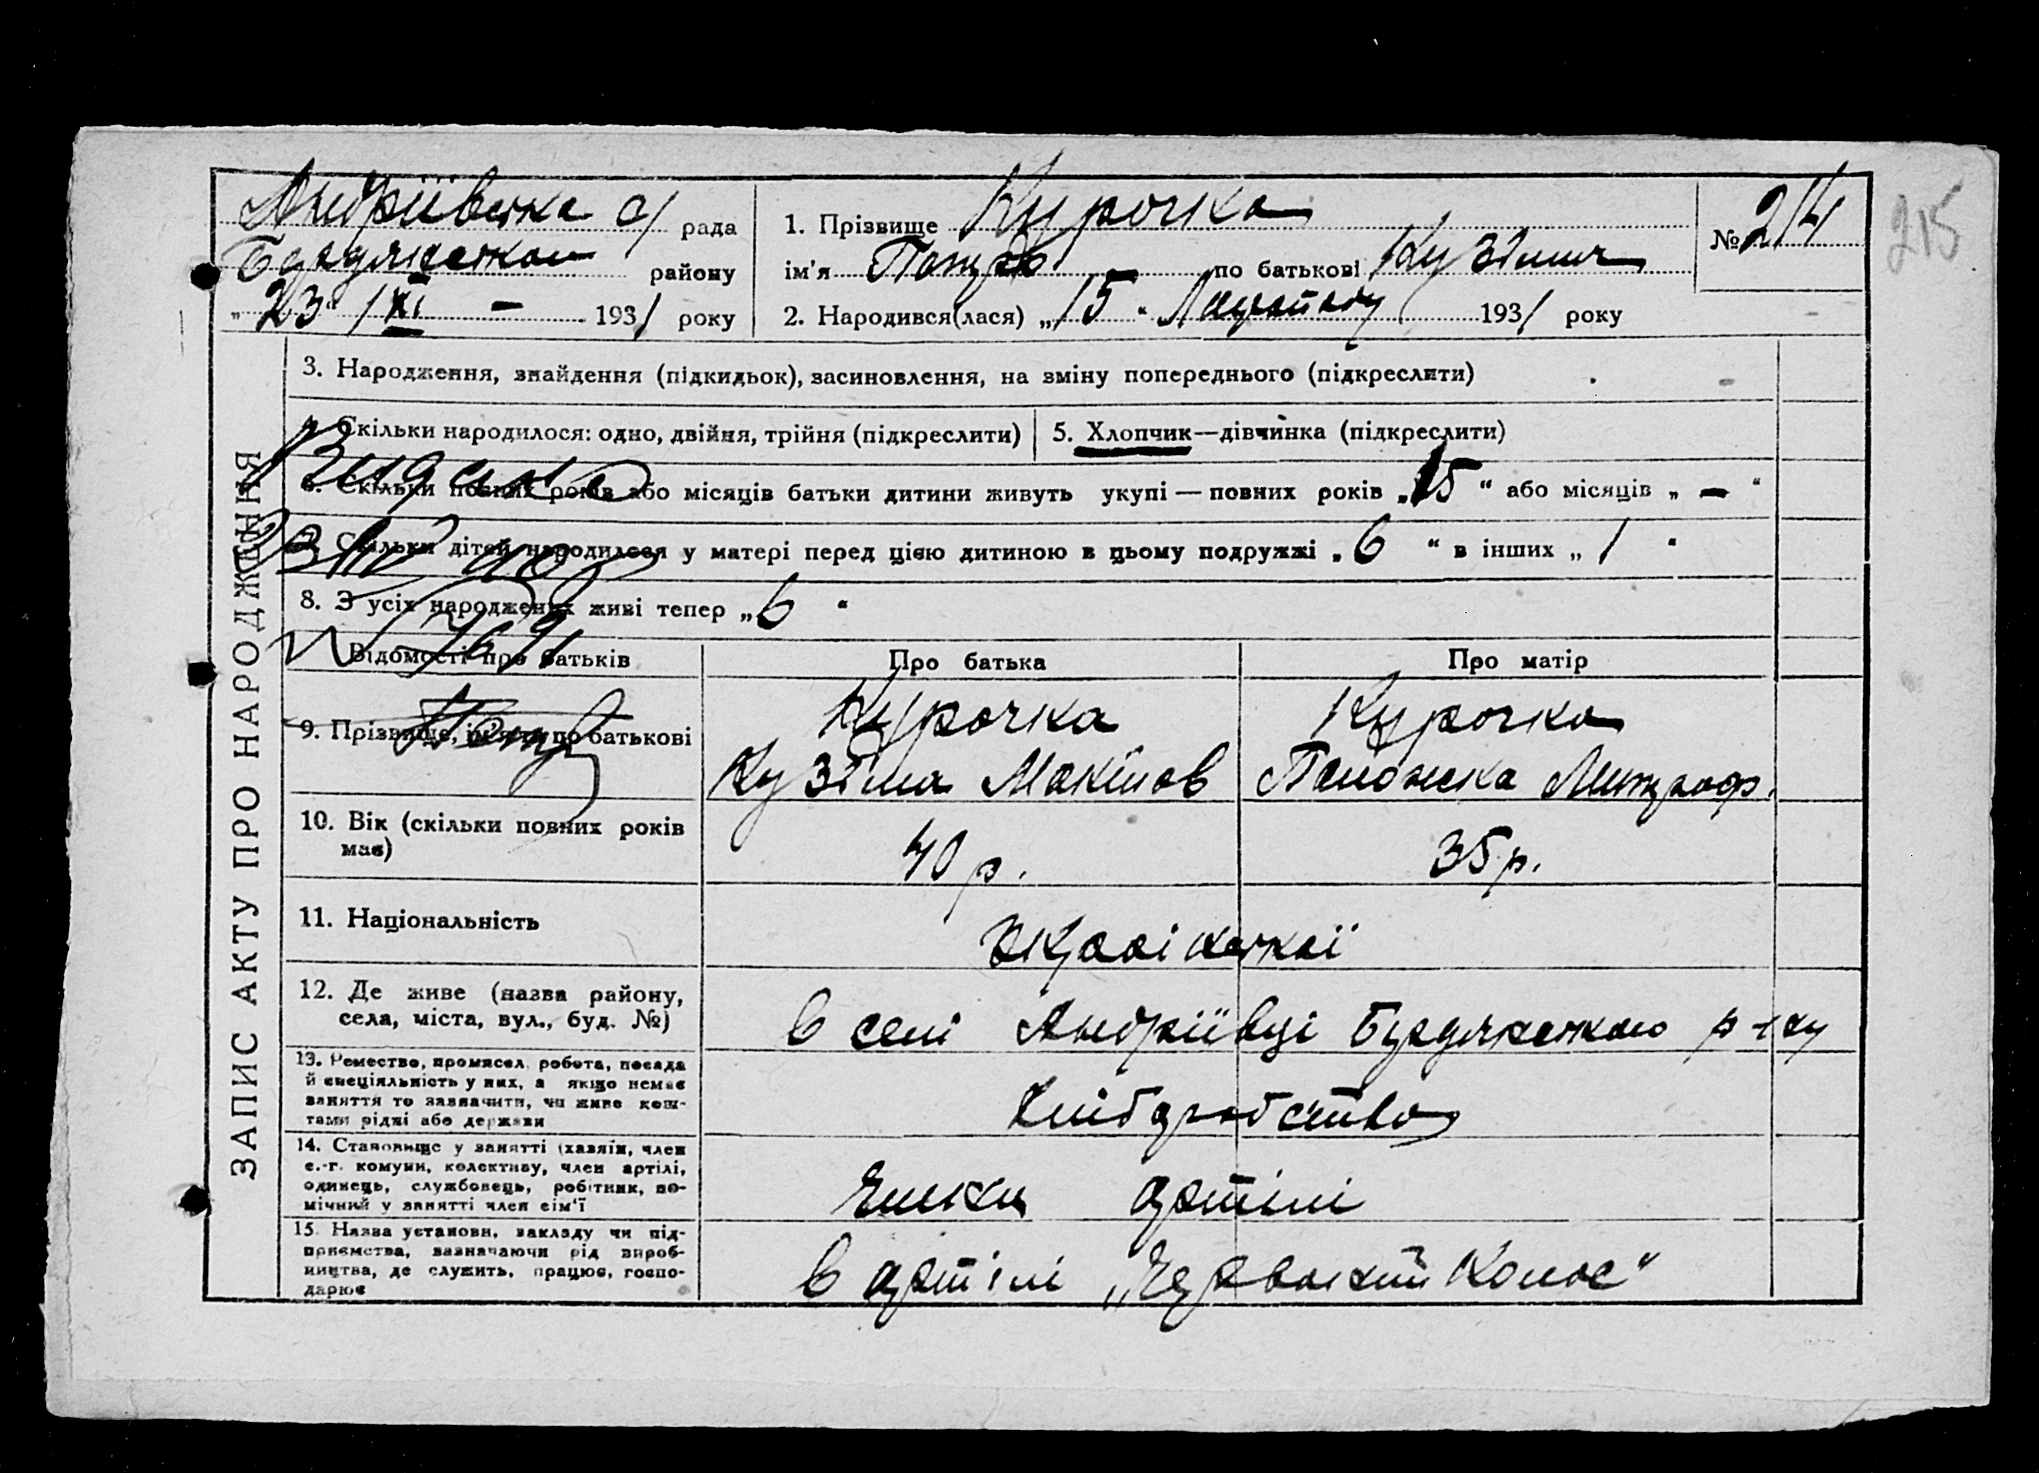 Андріївська с/ рада
Бердянського району
„23“ /XI – 1931 року
1. Прізвище Курочка
ім'я Петро по батькові Кузьмич
2. Народився(лася) „15“ Листопаду 1931 року
№ 214
215
ЗАПИС АКТУ ПРО НАРОДЖЕННЯ
3. Народження, знайдення (підкидьок), засиновлення, на зміну попереднього (підкреслити)
Скільки народилося: одно, двійня, трійня (підкреслити)
5. Хлопчик—дівчинка (підкреслити)
6. Скільки повних років або місяців батьки дитини живуть укупі — повних років „15“ або місяців „–“
7. Скільки дітей народилося у матері перед цією дитиною в цьому подружжі „6“ в інших „1“
8. З усіх народжених живі тепер „6“
Відомості про батьків
Про батька
Про матір
9. Прізвище, ім'я та по батькові
Курочка
Кузьма Макімов
Курочка
Пелажка Митроф.
10. Вік (скільки повних років
має)
40 р.
35 р.
11. Національність
Української
12. Де живе (назва району,
села, міста, вул., буд. №)
в селі Андріївці Бердянського р-ну
13. Ремество, промисел, робота, посада
й спеціяльність у них, а якщо немає
заняття то зазначити, чи живе кош-
тами рідні або держави
Хліборобство
14. Становище у занятті (хазяїн, член
с.-г. комуни, колективу, член артілі,
одинець, службовець, робітник, по-
мічний у занятті член сім'ї
члени артілі
15. Назва установи, закладу чи під-
приємства, зазначаючи рід вироб-
ництва, де служить, працює, госпо-
дарює
в артілі „Червоний Колос“